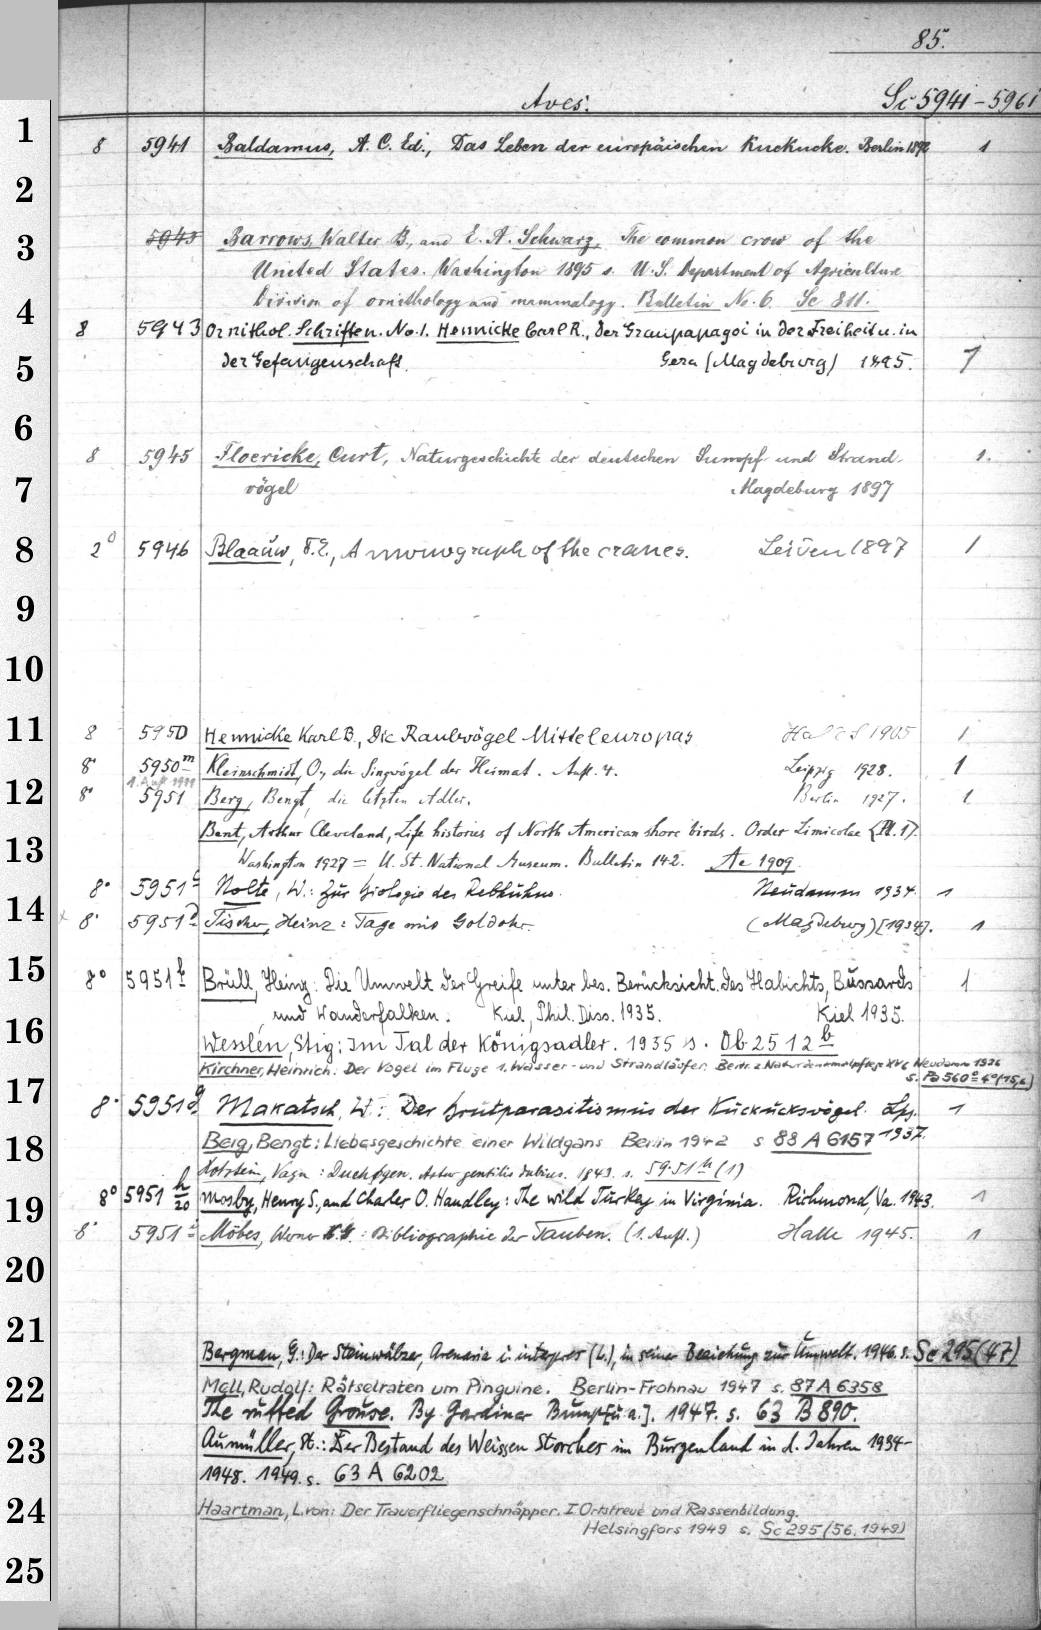 85.
Aves.
Sc 5941-5961
1
8 5941 Baldamus, A. C. Ed., Das Leben der europäischen Kuckucke. Berlin 1892 1
2
3
5943 Barrows, Walter B., and E. A. Schwarz, The common crow of the
United States. Washington 1895 s. U.S. Department of Agriculture
Division of ornithology and mammalogy. Bulletin No. 6. Sc 811.
4
8 5943 Ornithol. Schriften. No. 1. Hennicke Carl R., Der Graupapagei in der Freiheit u. in
5
der Gefangenschaft. Gera (Magdeburg) 1895. 1
6
8 5945 Floericke, Curt, Naturgeschichte der deutschen Sumpf- und Strand-
7
vögel Magdeburg 1897 1.
8
2° 5946 Blaauw, F. E., A monograph of the cranes. Leiden 1897 1
9
10
11
8 5950 Hennicke Karl B., Die Raubvögel Mitteleuropas Halle S 1905 1
8° 5950m Kleinschmidt, O., die Singvögel der Heimat. Aufl. 4. Leipzig 1928. 1
12
8° 5951 Berg, Bengt, die letzten Adler. Berlin 1927. 1
Bent, Arthur Cleveland, Life histories of North American shore birds. Order Limicolae (Pt. 1).
13
Washington 1927 = U. St. National Museum. Bulletin 142. Ac 1909
8° 5951c Nolte, W.: Zur Biologie des Rebhuhns. Neudamm 1934. 1
14
8° 5951d Fischer, Heinz: Tage mit Goldohr. (Magdeburg) [1934]. 1
15
8° 5951f Brüll, Heinz: Die Umwelt der Greife unter bes. Berücksicht. des Habichts, Bussards 1
und Wanderfalken. Kiel, Phil. Diss. 1935. Kiel 1935.
16
Wesslén, Stig: Im Tal der Königsadler. 1935 s. Ob 2512b
Kirchner, Heinrich: Der Vogel im Fluge 1. Wasser- und Strandläufer. Beitr. z Naturdenkmalpflege XVI, Neudamm 1936
17
s. Pa 560e=4°(15,6)
8° 5951g Makatsch, W.: Der Brutparasitismus der Kuckucksvögel. Lpz. 1937. 1
18
Berg, Bengt: Liebesgeschichte einer Wildgans Berlin 1942 s 88 A 6157
Holstein, Vagn: Duehøgen. Astur gentilis dubius. 1942. s. 5951m(1)
19
8° 5951 h/20 Mosby, Henry S., and Charles O. Handley: The wild Turkey in Virginia. Richmond, Va. 1943. 1
8° 5951i Möbes, Werner K. G.: Bibliographie der Tauben. (1. Aufl.) Halle 1945. 1
20
21
Bergman, G.: Der Steinwälzer, Arenaria i. interpres (L.), in seiner Beziehung zur Umwelt. 1946. s. Sc 295(47)
22
Mell, Rudolf: Rätselraten um Pinguine. Berlin-Frohnau 1947 s. 87 A 6358
The ruffed Grouse. By Gardiner Bump [u. a.]. 1947. s. 63 B 890.
23
Aumüller, St.: Der Bestand des Weissen Storches im Burgenland in d. Jahren 1934-
1948. 1949. s. 63 A 6202
24
Haartman, L. von: Der Trauerfliegenschnäpper. I Ortstreue und Rassenbildung.
Helsingfors 1949 s. Sc 295 (56. 1949)
25